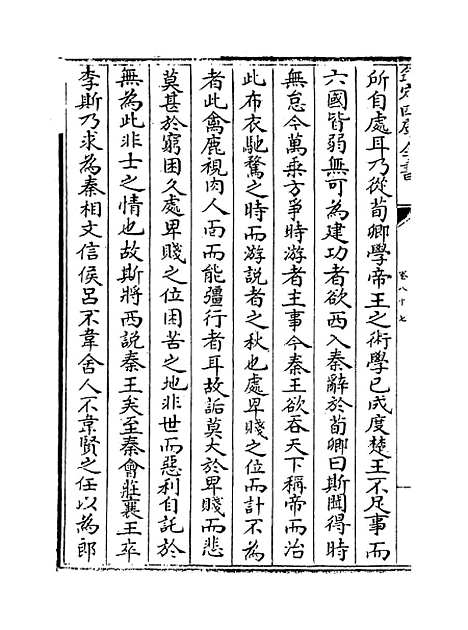 欽定四庫全書
卷八十七
所自處耳乃從荀卿學帝王之術學已成度楚王不足事而
六國皆弱無可為建功者欲西入秦辭於荀卿曰斯聞得時
無怠今萬乘方爭時游者主事今秦王欲吞天下稱帝而治
此布衣馳騖之時而游說者之秋也處卑賤之位而計不為
者此禽鹿視肉人面而能彊行者耳故詬莫大於卑賤而悲
莫甚於窮困久處卑賤之位困苦之地非世而惡利自託於
無為此非士之情也故斯將西說秦王矣至秦會莊襄王卒
李斯乃求為秦相文信侯呂不韋舍人不韋賢之任以為郎